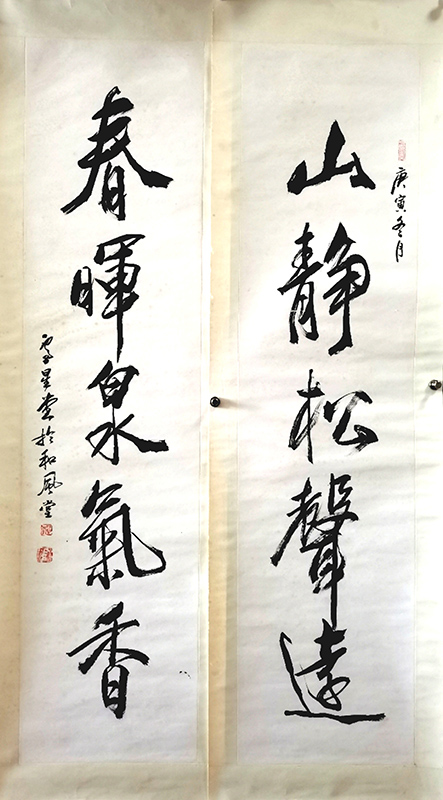 庚寅冬月
山靜松聲遠
春暉泉氣香
星 於和風堂